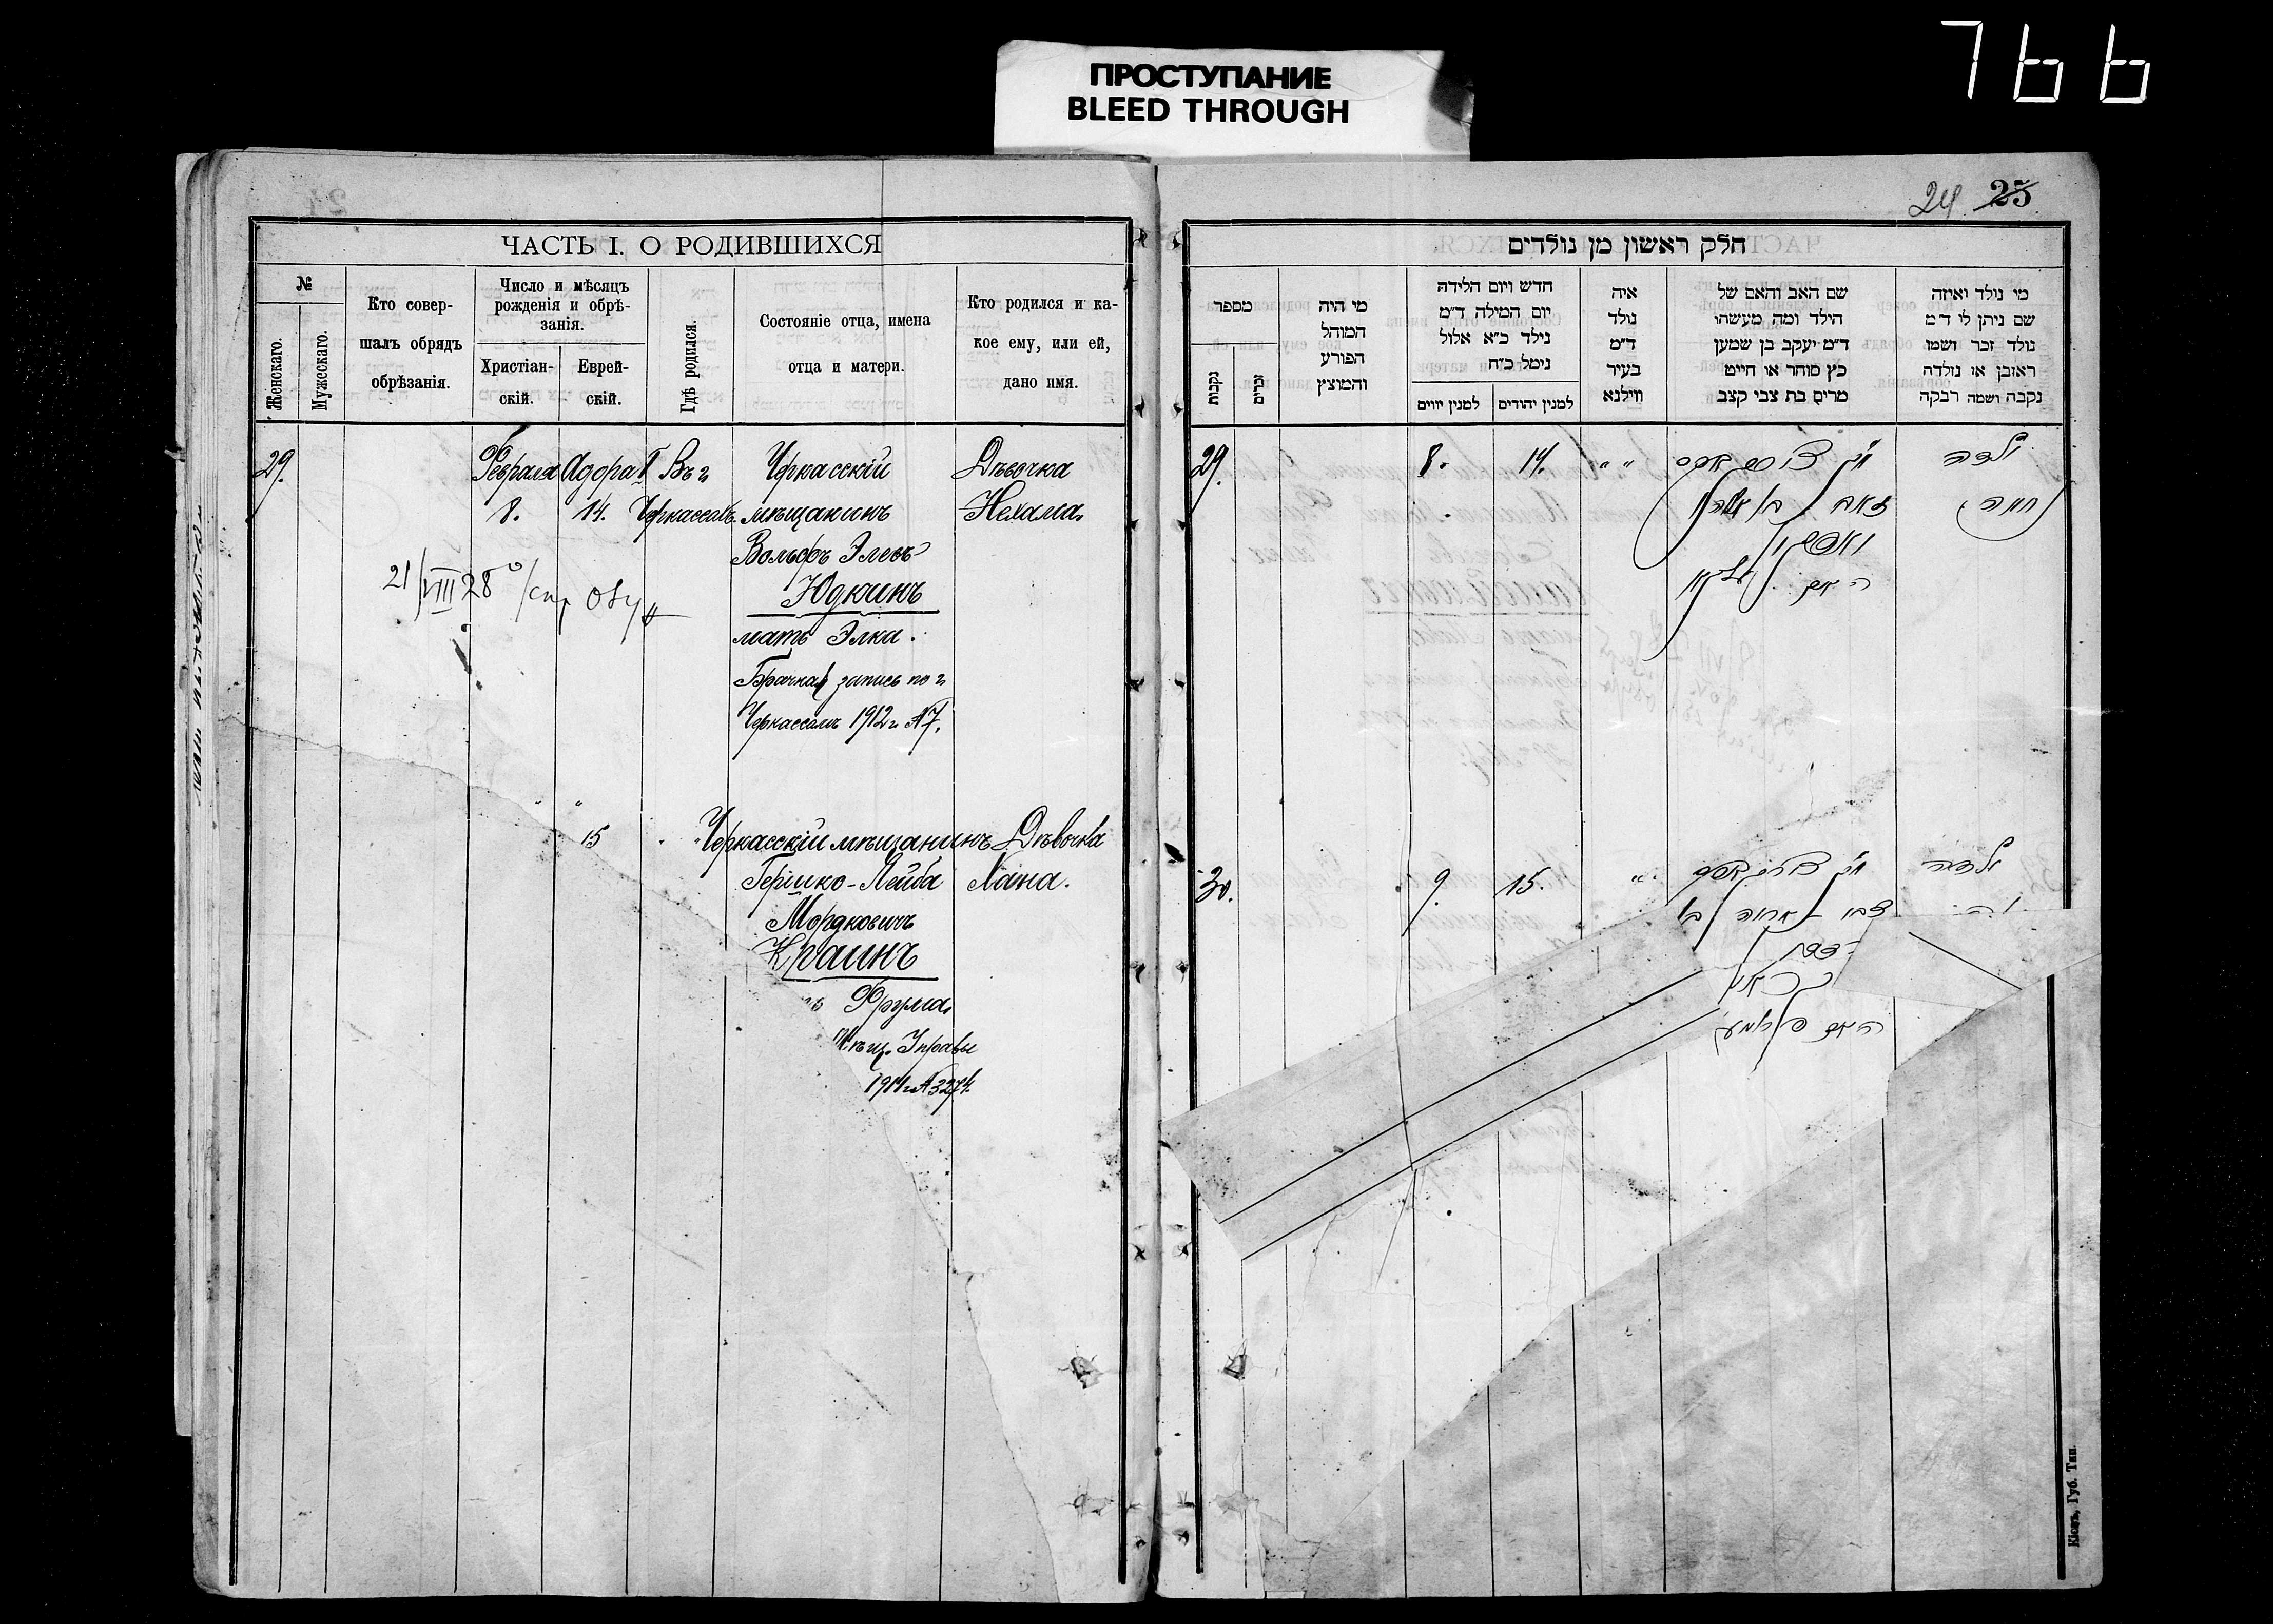 766
ПРОСТУПАНИЕ
BLEED THROUGH
ЧАСТЬ I. О РОДИВШИХСЯ
№
Женскаго.
Мужескаго.
Кто совер-
шалъ обрядъ
обрѣзанія.
Число и мѣсяцъ
рожденія и обрѣ-
занія.
Христіан-
скій.
Еврей-
скій.
Гдѣ родился.
Состояніе отца, имена
отца и матери.
Кто родился и ка-
кое ему, или ей,
дано имя.
29.
Февраля
8.
Адора II
14.
Въ г
Черкассахъ.
Черкасскій
мѣщанинъ
Вольфъ Элевъ
Юдкинъ
мать Элка.
Брачная запись по г
Черкассамъ 1912 г №7.
Дѣвочка
Нехама.
21/VIII 28
" "
15
Черкасскій мѣщанинъ
Гершко-Лейба
Мордковичъ
Краинъ
Фрума
Мѣщ. Управы
Дѣвочка
Хана.
24 25
חלק ראשון מן נולדים
מספר
נקבות
זכרים
מי היה
המוהל
הפורע
והמוצץ
חדש ויום הלידה
יום המילה ד״מ
נילד כ״א אלול
נימל כ״ח
למנין יווים
למנין יהודים
איה
נולד
ד״מ
בעיר
ווילנא
שם האב והאם של
הילד ומה מעשהו
ד״מ יעקב בן שמען
כץ סוחר או חייט
מרים בת צבי קצב
מי נולד ואיזה
שם ניתן לו ד״מ
נולד זכר ושמו
ראובן או נולדה
נקבה ושמה רבקה
29.
8.
14.
" "
ילדה
נחמה
30.
9.
15.
"
ילדה
חנה
האם פרומע
Кіевъ, Губ. Тип.